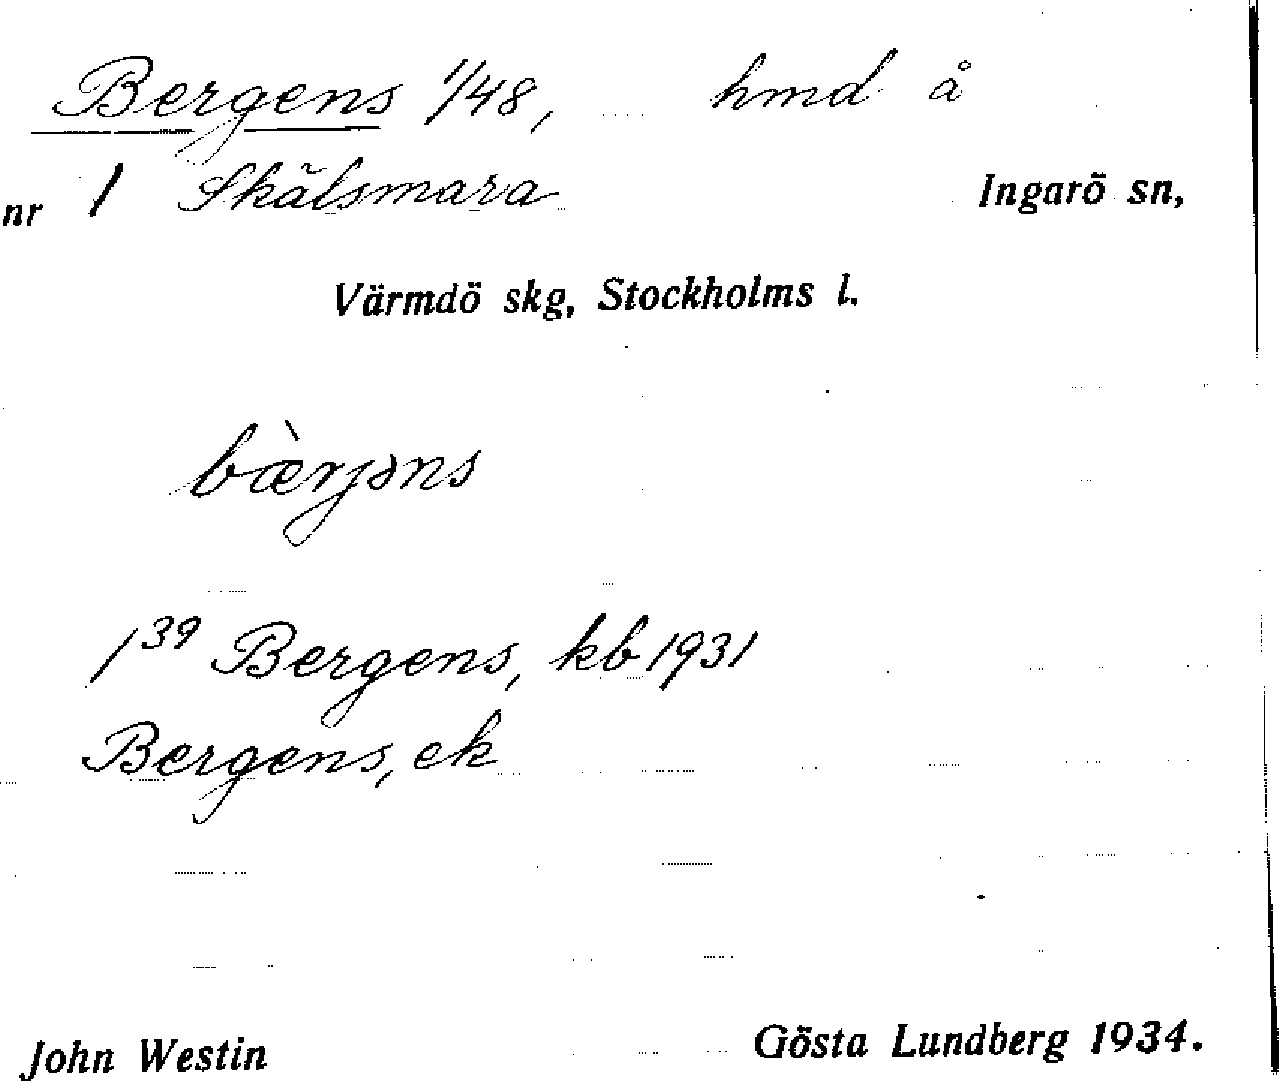 Bergens 1/48, hmd å
nr 1 Skälsmara Ingarö sn,
Värmdö skg, Stockholms l.
bæ̀rjəns
1³⁹ Bergens, kb 1931
Bergens, ek
John Westin Gösta Lundberg 1934.